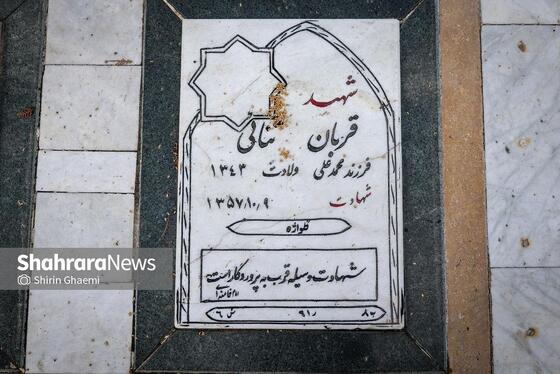 شهید
قربان
فرزند محمدعلی ولادت ۱۳۴۳
شهادت
۱۳۵۷/۱۰/۹
شهادت وسیله قرب به پروردگار است
ش ۶ ۹۱ر ۸۲
ShahraraNews
Shirin Ghaemi